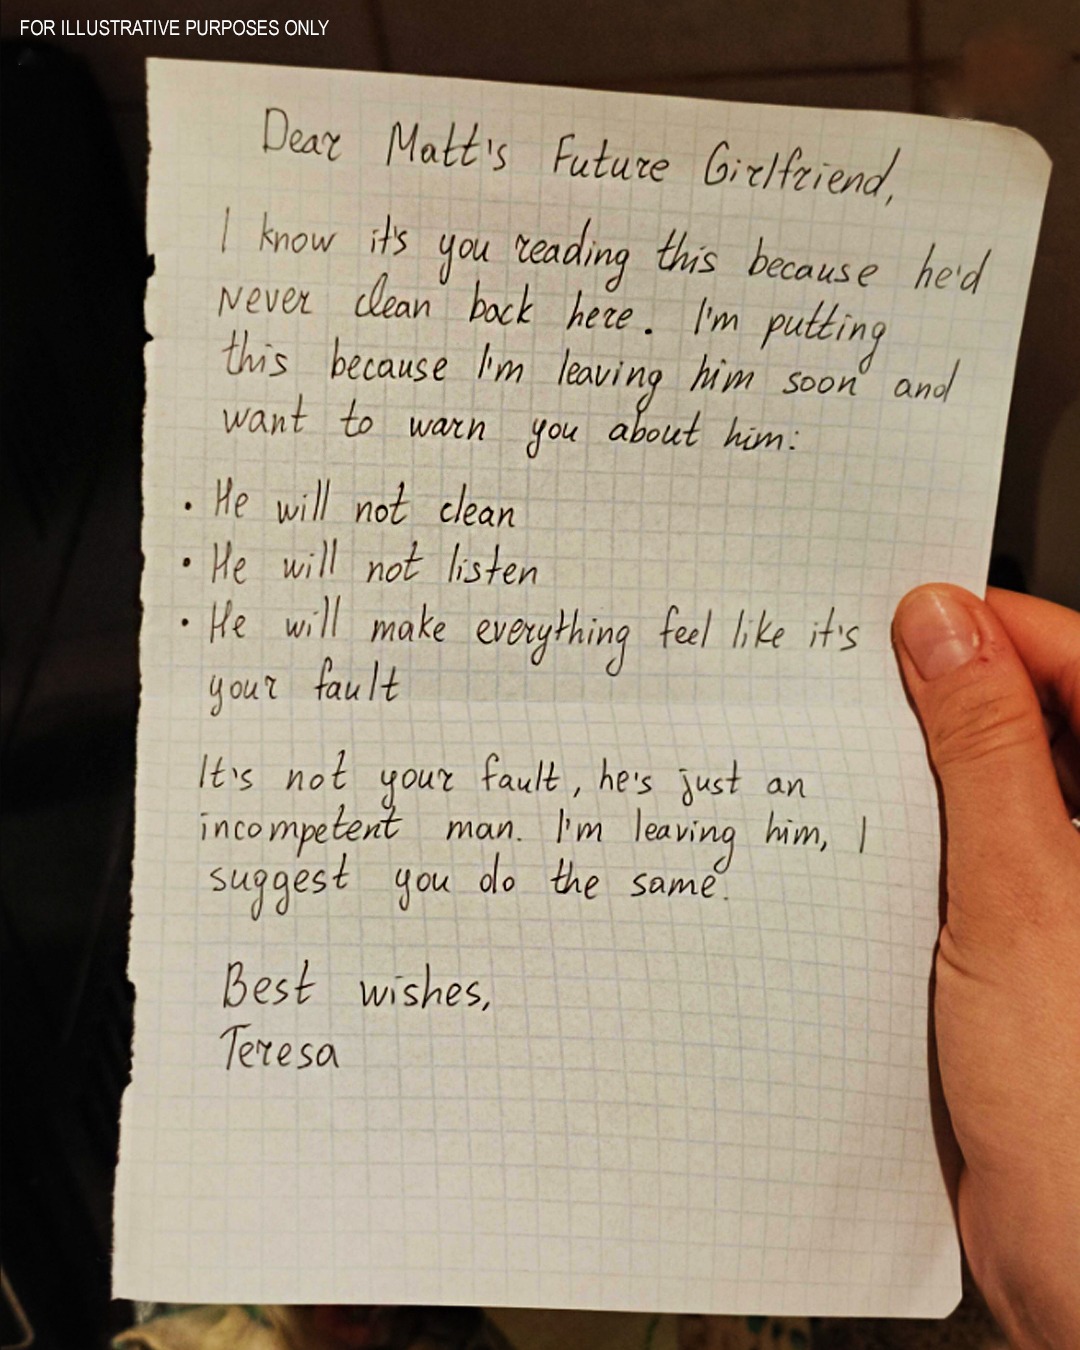 FOR ILLUSTRATIVE PURPOSES ONLY
Dear Matt's Future Girlfriend,
I know it's you reading this because he'd
never clean back here. I'm putting
this because I'm leaving him soon and
want to warn you about him:
• He will not clean
• He will not listen
• He will make everything feel like it's
your fault
It's not your fault, he's just an
incompetent man. I'm leaving him, I
suggest you do the same.
Best wishes,
Teresa